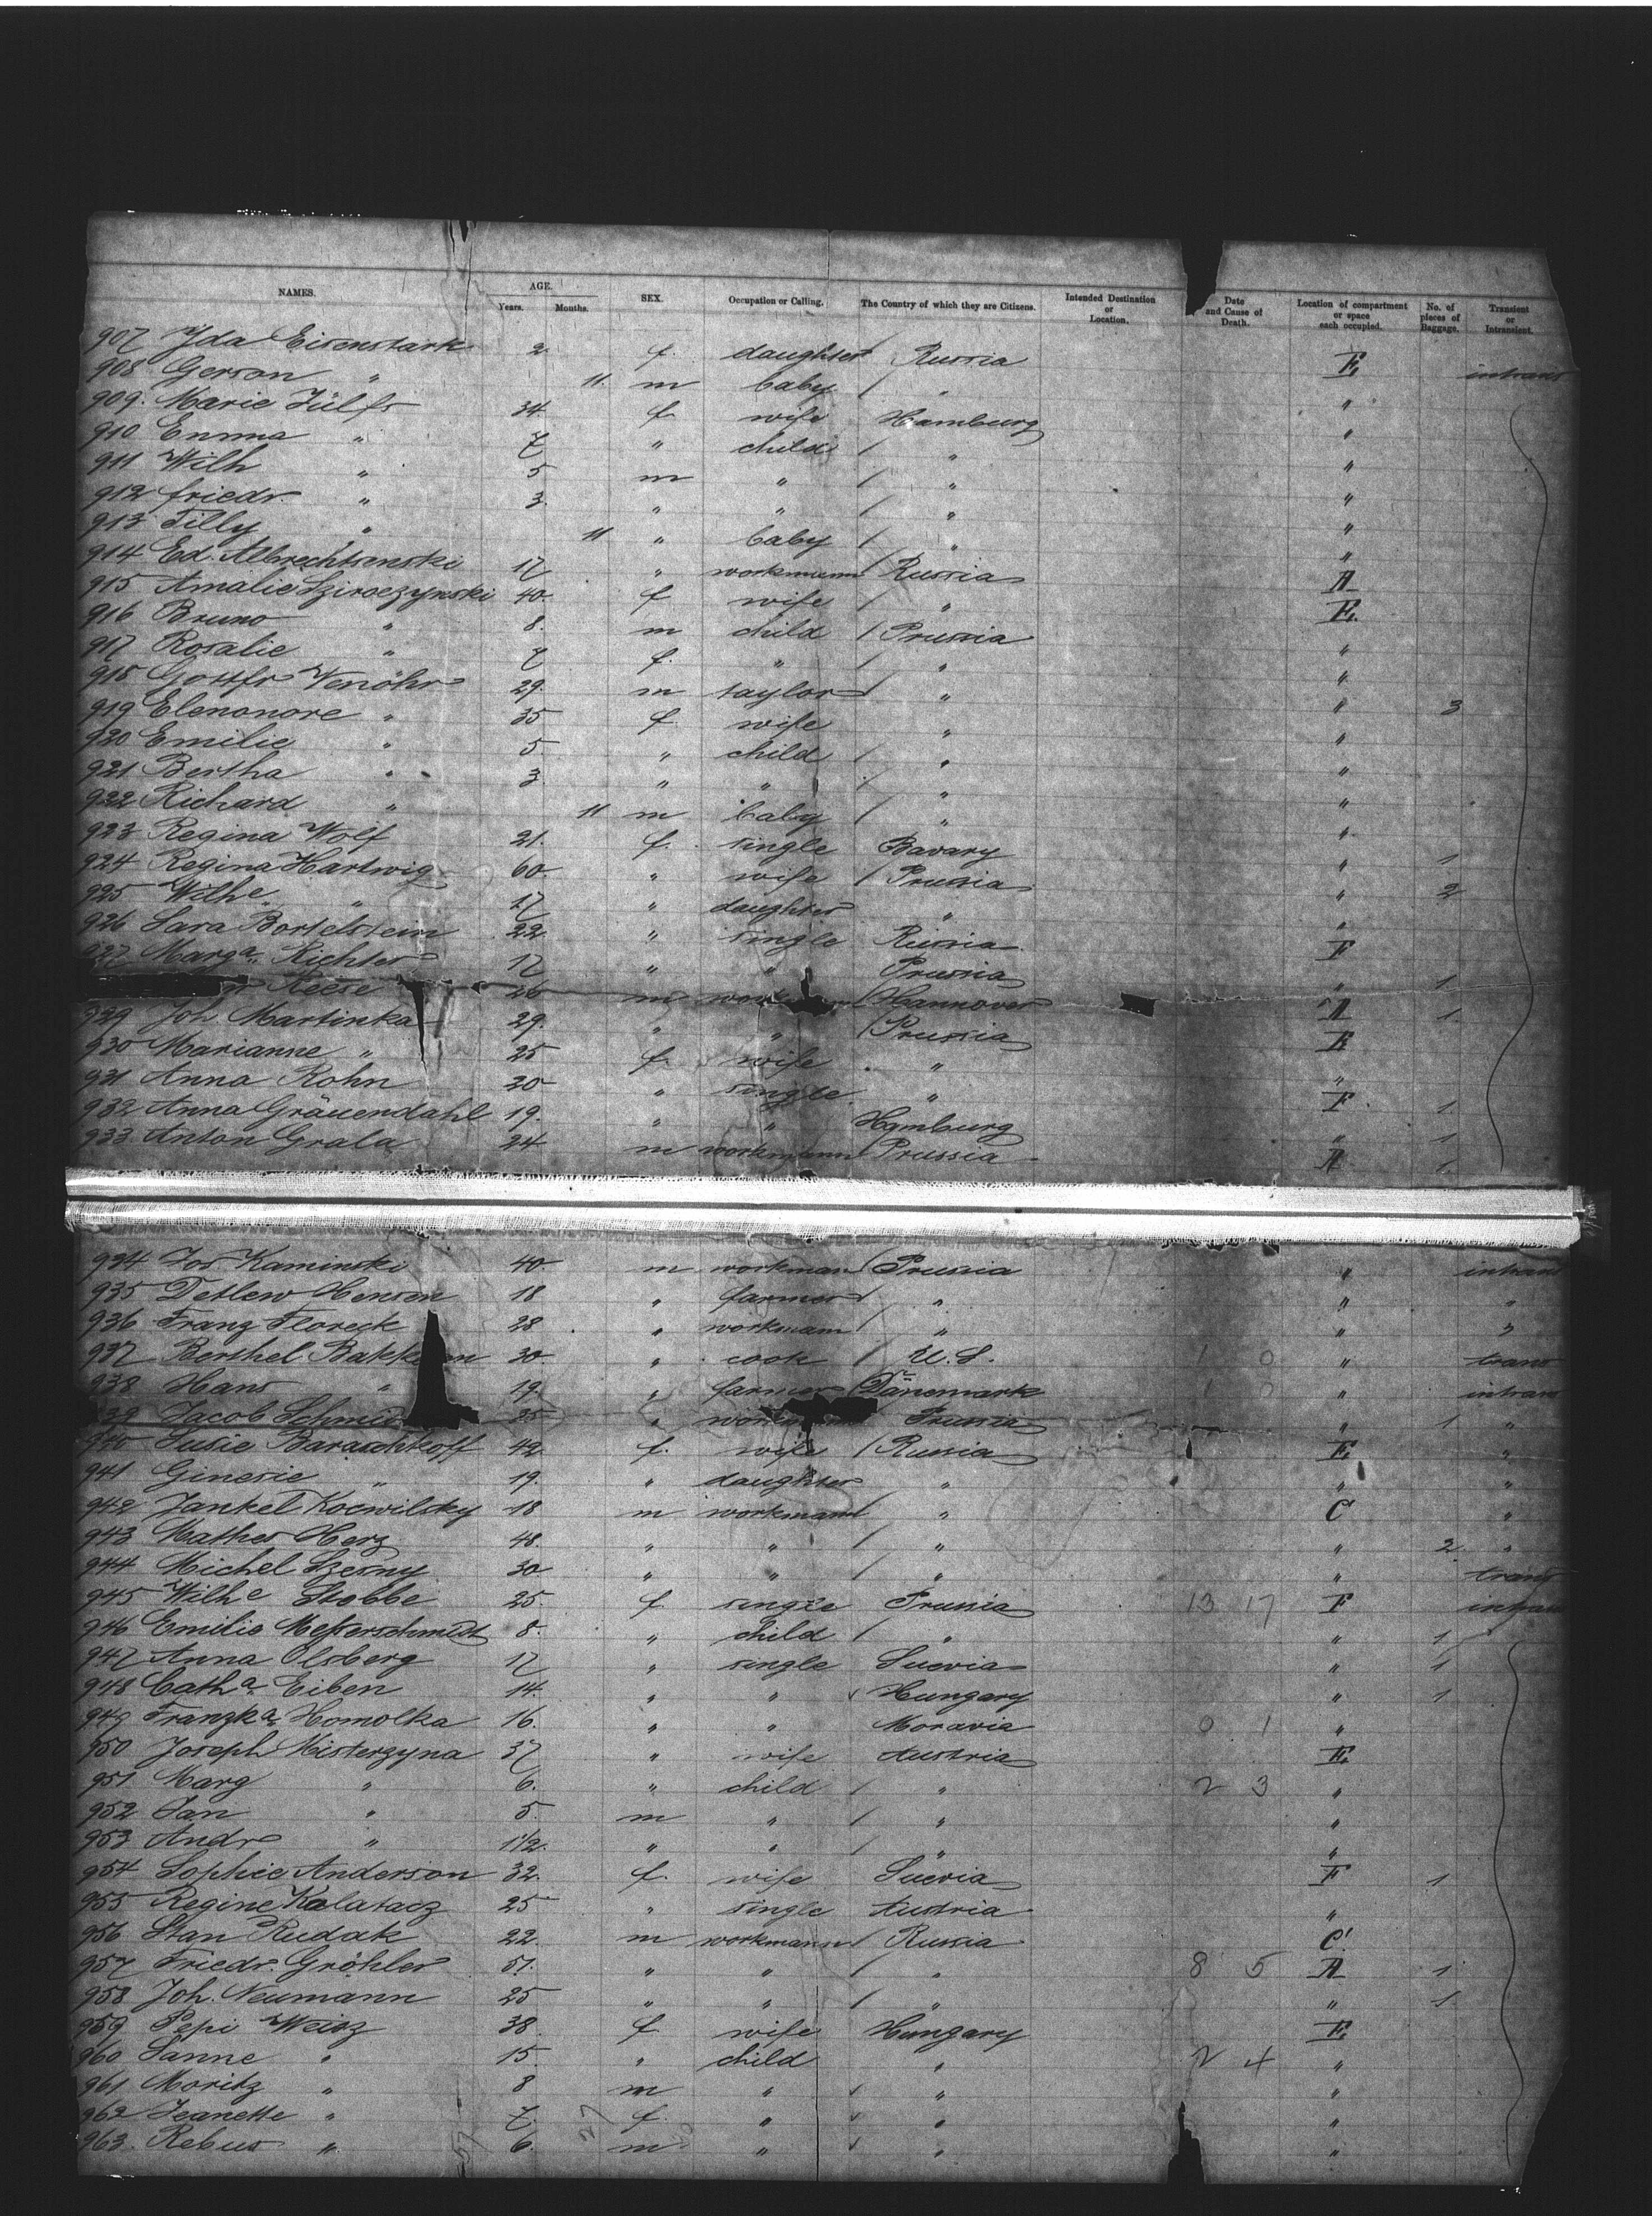 NAMES. AGE. Years. Months. SEX. Occupation or Calling. The Country of which they are Citizens. Intended Destination or Location. Date and Cause of Death. Location of compartment or space each occupied. No. of pieces of Baggage. Transient or Intransient.
907 Ida Eisenstark 2 f. daughter Russia E intrans
908 Gerson " 11. m baby / " "
909. Marie Tülfs 34 f. wife Hamburg "
910 Emma " 7 " child / " "
911 Wilh " 5 m " / " "
912 friedr. " 3 " " / " "
913 Tilly " 11 " baby / " "
914 Ed. Albrechtsenski 17 " workmann / Russia A
915 Amalie 40. f. wife / " E.
916 Bruno " 8. m child / Prussia "
917 Rosalie " 7 f. " / " "
918 Gottfr Venöhr 29. m taylor / " " 3
919 Elenonore " 35 f. wife " "
920 Emilie " 5. " child / " "
921 Bertha " 3 " " / " "
922 Richard " 11 m baby / " "
923 Regina Wolf 21. f. single Bavary " 1
924 Regina Hartwig 60 " wife / Prussia " 2
925 Wilhe. " 17 " daughter " "
926 Sara Bortelstein 22 " single Russia F
927 Marga. Richter 17 " " Prussia " 1
Reese 26 m Hannover A 1.
929 Joh. Martinka 29. " " / Prussia E
930 Marianne " 25 f. wife " "
931 Anna Rohn 20 " single " F 1.
932 Anna Gräuendahl 19. " " Hamburg " 1
933 Anton Grala 24 m workmann Prussia A 1.
934 Jos Kaminski 40. m workman / Prussia " intrans
935 Detlew Hensen 18 " farmer / " " "
936 Franz Floreck 28 " workmam / " " "
937 Berthel 30. " cook / U.S. 1 0 " trans
938 Hans " 19. " farmer / Dänemark 1 0 " intrans
939 Jacob Schmid 25 " Prussia " 1 "
940 Susie Baraschkoff 42 f. wife / Russia E "
941 Ginesie " 19. " daughter " " "
942 Jankel Kocwilsky 18 m workmann " C "
943 Mathes Herz 48. " " / " " 2 "
944 Michel Szerny 30 " " / " " trans
945 Wilhe Stobbe 25 f. single Prussia 13 17 F intrans
946 Emilie Messerschmidt 8. " child / " " 1
947 Anna Olsberg 17 " single Suevia " 1
948 Catha. Eiben 14. " " Hungary " 1
949 Franzka. Homolka 16. " " Moravia 0 1 "
950 Joseph Misterzyna 37 " wife Austria E
951 Marg " 6. " child / " 2 3 "
952 Jan " 5. m " / " "
953 Andr " 1 1/2. " " / " "
954 Sophie Anderson 32. f. wife Suevia F 1
955 Regine Kalatacz 25 " single Austria "
956 Stan Rudak 22. m workmann / Russia C
957 Friedr. Gröhler 51. " " / " 8 5 A 1
958 Joh. Neumann 25 " " / " " 1
959 Pepi Weisz 38. f. wife Hungary E
960 Sanne " 15. " child " 2 4 "
961 Moritz " 8 m " " "
962 Jeanette " 7. f. " " "
963. Rebus " 6. m " " "